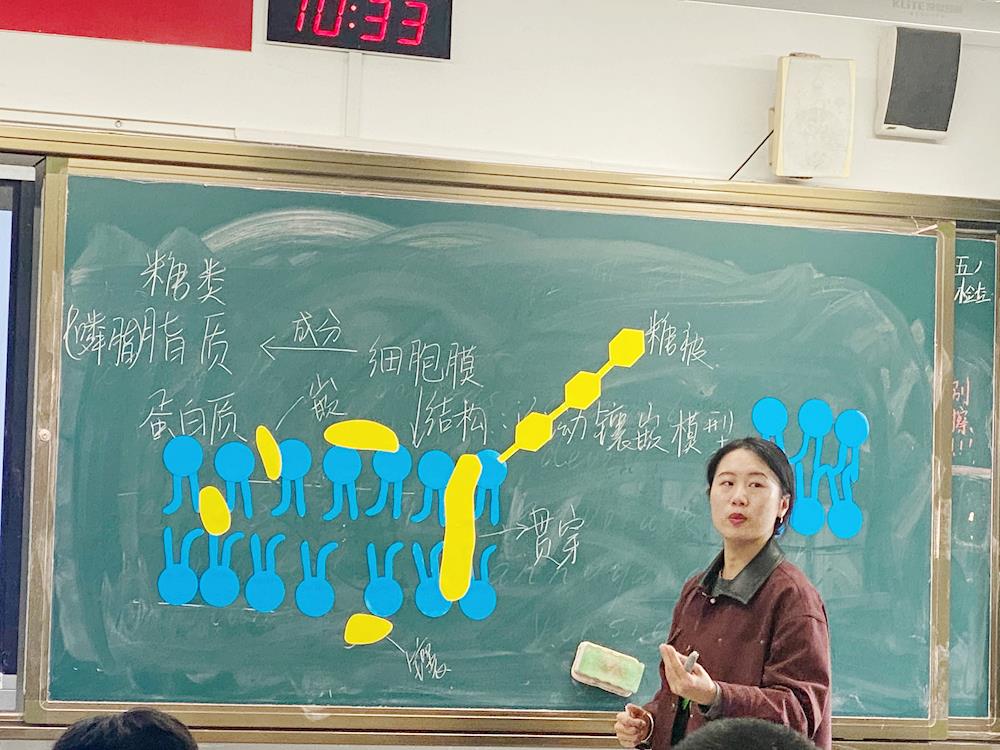 10:33
KLiTE
糖类
(磷脂)脂质
成分
细胞膜
糖被
蛋白质
嵌
结构:流动镶嵌模型
贯穿
镶
五
检查
别
擦
!!!